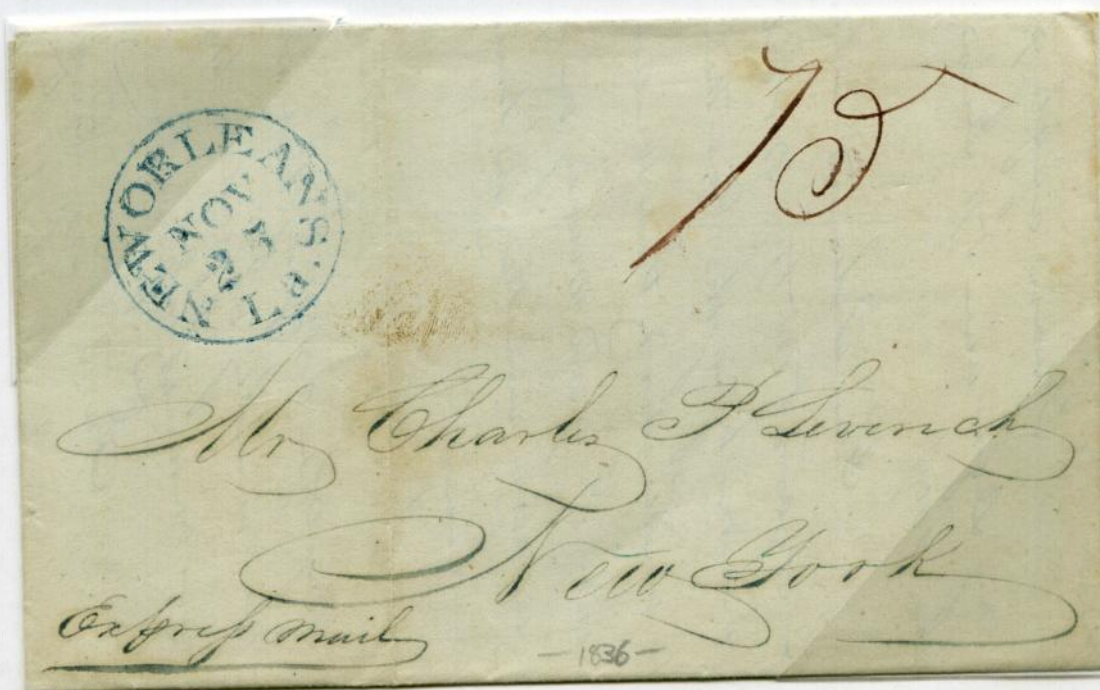 NEW ORLEANS. La.
NOV
25
75
Mr Charles P Leverich
New York
Express Mail
-1836-